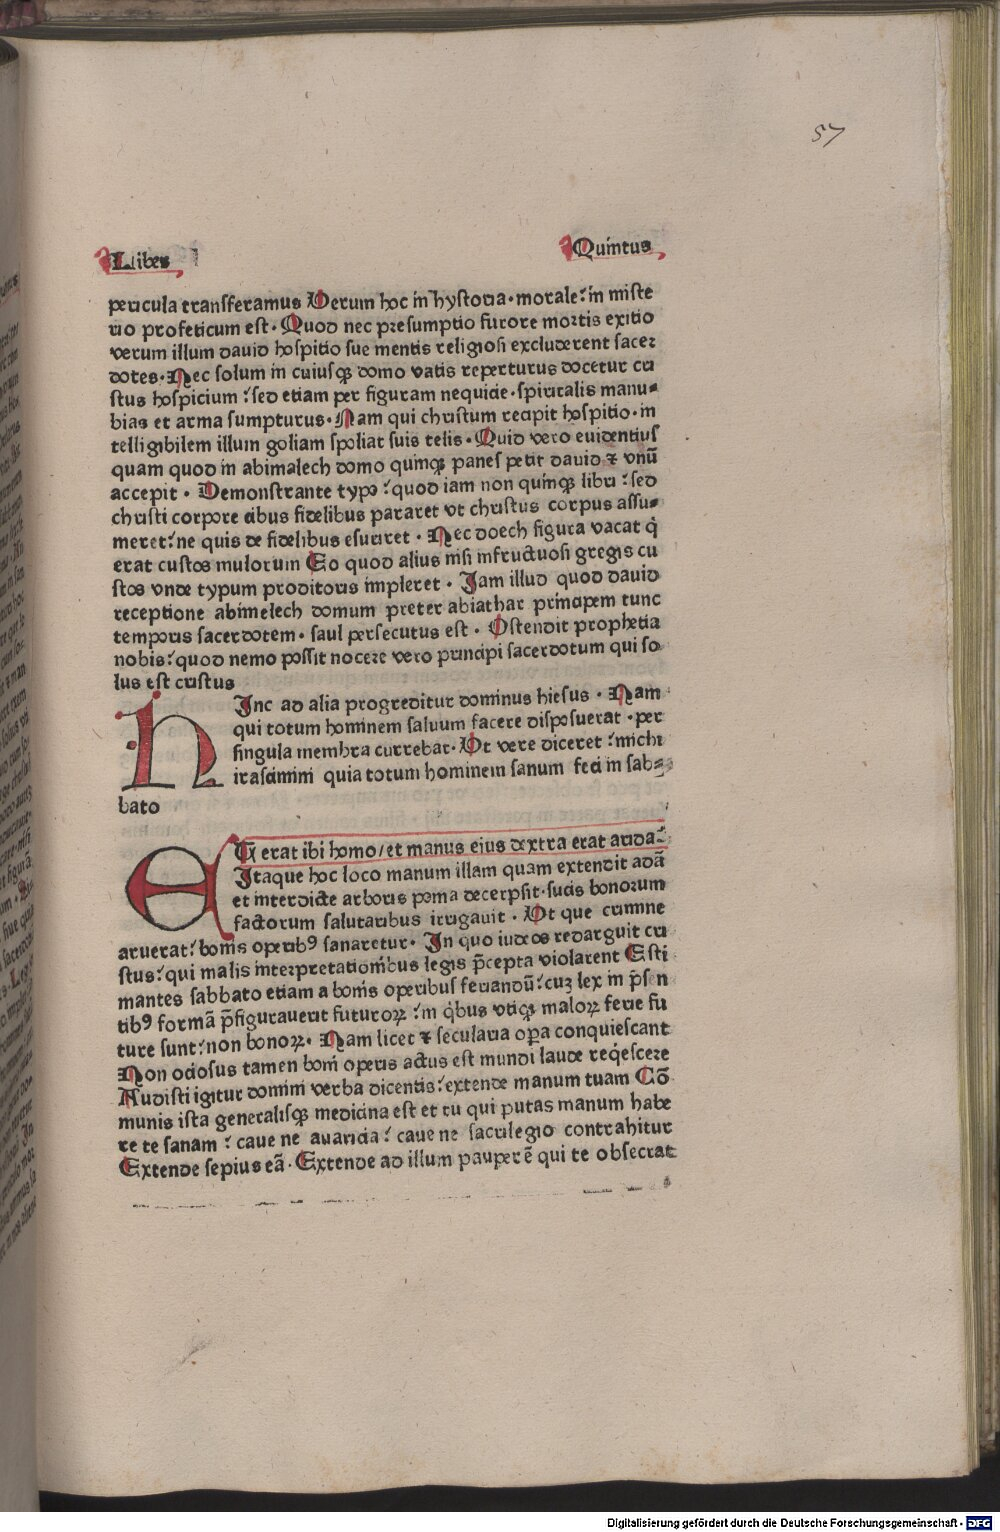 57
Liber Quintus
pericula transferamus Verum hoc in hystoria · morale: in miste
rio profeticum est · Quod nec presumptio furore mortis exitio
verum illum dauid hospitio sue mentis religiosi excluderent sacer
dotes · Nec solum in cuiusqꝫ domo vatis reperturus docetur cri
stus hospicium: sed etiam per figuram nequicie · spiritalis manu-
bias et arma sumpturus · Nam qui christum recipit hospitio · in
telligibilem illum goliam spoliat suis telis · Quid vero euidentius
quam quod in abimalech domo quinqꝫ panes petit dauid ⁊ vnū
accepit · Demonstrante typo: quod iam non quinqꝫ libri: sed
christi corpore cibus fidelibus pararet vt christus corpus assu-
meret: ne quis de fidelibus esuriret · Nec doech figura vacat q̇
erat custos mulorum Eo quod alius nisi infructuosi gregis cu
stos vnde typum proditoris impleret · Jam illud quod dauid
receptione abimelech domum preter abiathar principem tunc
temporis sacerdotem · saul persecutus est · Ostendit prophetia
nobis: quod nemo possit nocere vero principi sacerdotum qui so-
lus est cristus
HJnc ad alia progreditur dominus hiesus · Nam
qui totum hominem saluum facere disposuerat · per
singula membra currebat · Vt vere diceret: michi
irascimini quia totum hominem sanum feci in sab-
bato
ET erat ibi homo / et manus eius dextra erat arida:
Jtaque hoc loco manum illam quam extendit adā
et interdicte arboris poma decerpsit · sucis bonorum
factorum salutaribus irrigauit · Vt que crimine
aruerat: bonis operibꝰ sanaretur · Jn quo iudeos redarguit cri
stus: qui malis interpretationibus legis p̄cepta violarent Esti
mantes sabbato etiam a bonis operibus feriandū: cuꝫ lex in p̄sen
tibꝰ formā p̄figurauerit futuroꝝ: in q̇bus vtiqꝫ maloꝝ ferie fu
ture sunt: non bonoꝝ · Nam licet ⁊ secularia opa conquiescant
Non ociosus tamen boni operis actus est mundi laude req̇escere
Audisti igitur domini verba dicentis: extende manum tuam Cō
munis ista generalisqꝫ medicina est et tu qui putas manum habe
re te sanam: caue ne auaricia: caue ne sacrilegio contrahitur
Extende sepius eā · Extende ad illum pauperē qui te obsecrat
Digitalisierung gefördert durch die Deutsche Forschungsgemeinschaft - DFG